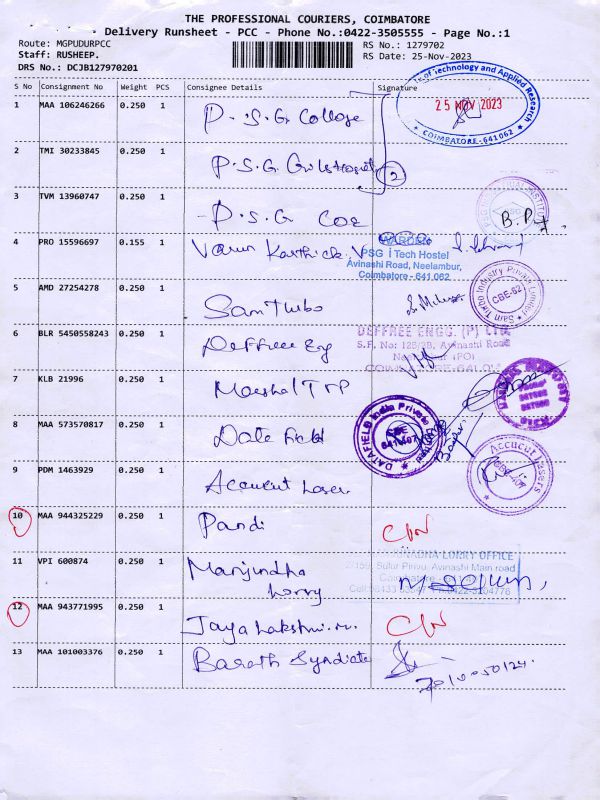 THE PROFESSIONAL COURIERS, COIMBATORE
Delivery Runsheet - PCC - Phone No.:0422-3505555 - Page No.:1
Route: MGPUDURPCC
RS No.: 1279702
Staff: RUSHEEP.
RS Date: 25-Nov-2023
DRS No.: DCJB127970201
S No Consignment No Weight PCS Consignee Details Signature
1 MAA 106246266 0.250 1 P.S.G. College
of Technology and Applied Research
25 NOV 2023
COIMBATORE-641062
2 TMI 30233845 0.250 1 P.S.G.
2
3 TVM 13960747 0.250 1 P.S.G COE
B.P
4 PRO 15596697 0.155 1 Varun Karthick.V
WARDEN
PSG iTech Hostel
Avinashi Road, Neelambur,
Coimbatore - 641 062
5 AMD 27254278 0.250 1 Sam Turbo
Sam Turbo Industry Private Limited
CBE-62
6 BLR 5450558243 0.250 1 Deffree Eng
DEFFREE ENGG. (P) LTD
S.F. No: 125/2B, Avinashi Road
(PO)
7 KLB 21996 0.250 1
8 MAA 573570817 0.250 1 Data Field
DATAFIELD India Private
CBE
9 PDM 1463929 0.250 1 Accucut Laser
Accucut Lasers
10 MAA 944325229 0.250 1 Pandi
C/N
11 VPI 600874 0.250 1 Manjundha
Lorry
LORRY OFFICE
Sulur Pirivu, Avinashi Main road
12 MAA 943771995 0.250 1 Jaya Lakshmi.
C/N
13 MAA 101003376 0.250 1 Barath Syndicate